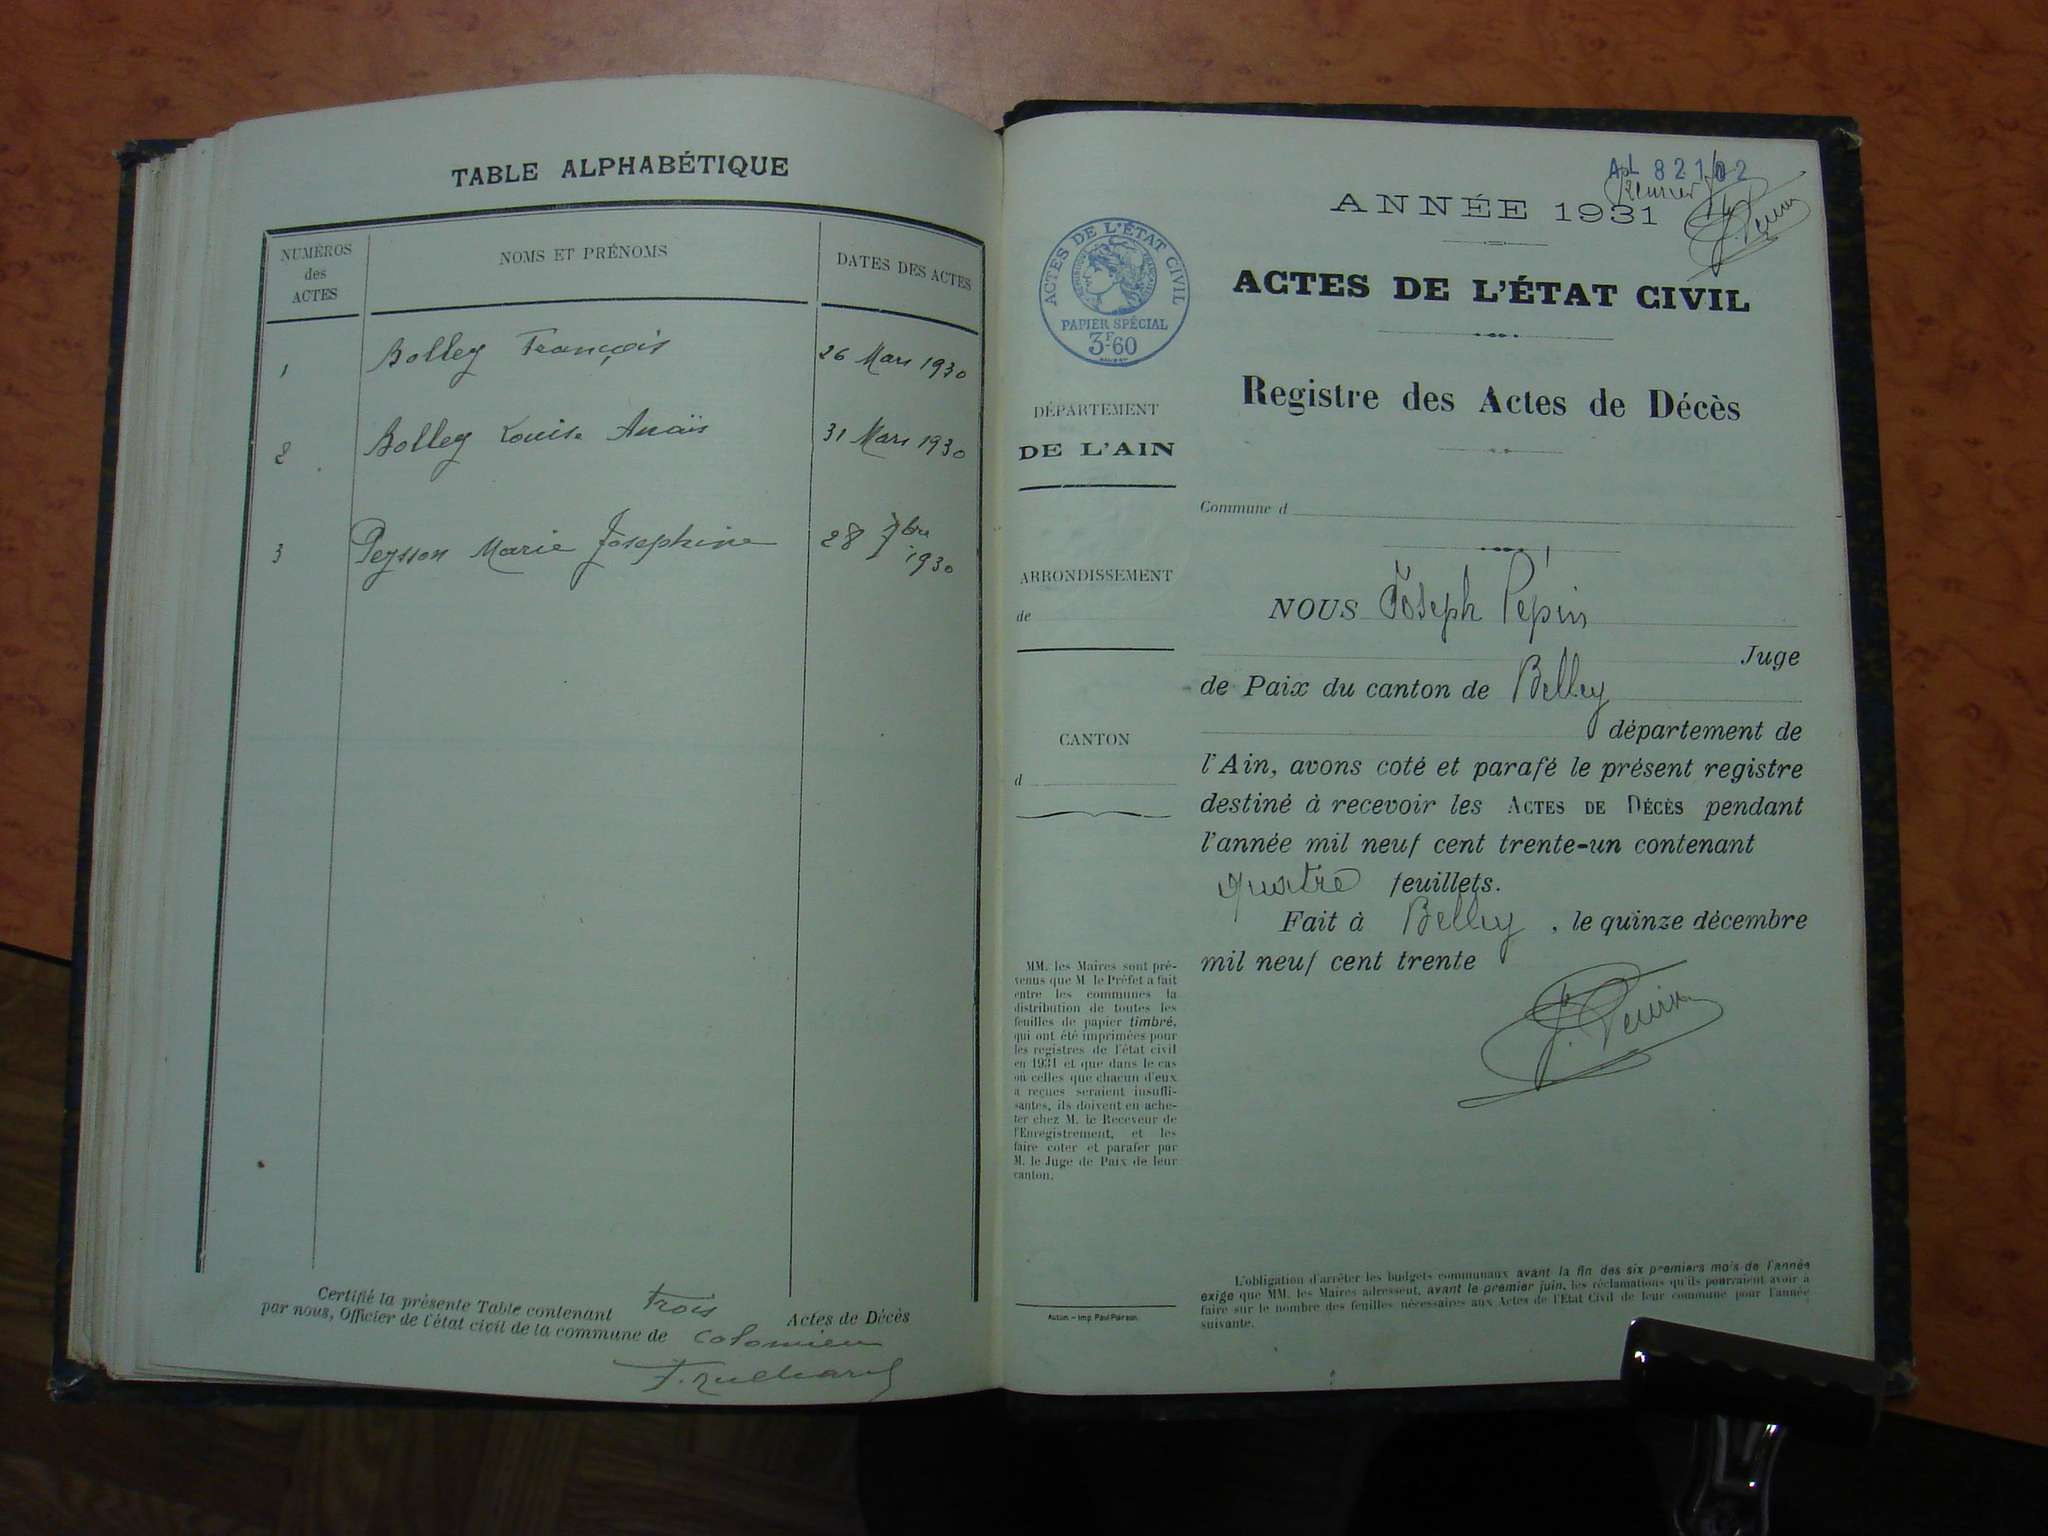 TABLE ALPHABÉTIQUE
NUMÉROS
des
ACTES
NOMS ET PRÉNOMS
DATES DES ACTES
1 Bolley François 26 Mars 1930
2 Bolley Louise Anaïs 31 Mars 1930
3 Peysson Marie Josephine 28 7bre
1930
Certifié la présente Table contenant trois Actes de Décès
par nous, Officier de l'état civil de la commune de Colomieu
AL 821/02
Premier
ANNÉE 1931
ACTES DE L'ÉTAT CIVIL
PAPIER SPÉCIAL
3F60
ACTES DE L'ÉTAT CIVIL
Registre des Actes de Décès
DÉPARTEMENT
DE L'AIN
Commune d
ARRONDISSEMENT
de
CANTON
d
NOUS Joseph Pépin
Juge
de Paix du canton de Belley
département de
l'Ain, avons coté et parafé le présent registre
destiné à recevoir les ACTES DE DÉCÈS pendant
l'année mil neuf cent trente-un contenant
quatre feuillets.
Fait à Belley, le quinze décembre
mil neuf cent trente
J. Pépin
MM. les Maires sont pré-
venus que M. le Préfet a fait
entre les communes la
distribution de toutes les
feuilles de papier timbré,
qui ont été imprimées pour
les registres de l'état civil
en 1931 et que dans le cas
où celles que chacun d'eux
a reçues seraient insuffi-
santes, ils doivent en ache-
ter chez M. le Receveur de
l'Enregistrement, et les
faire coter et parafer par
M. le Juge de Paix de leur
canton.
Autun. – Imp. Paul Poirson.
L'obligation d'arrêter les budgets communaux avant la fin des six premiers mois de l'année
exige que MM. les Maires adressent, avant le premier juin, les réclamations qu'ils pourraient avoir à
faire sur le nombre des feuilles nécessaires aux Actes de l'État Civil de leur commune pour l'année
suivante.